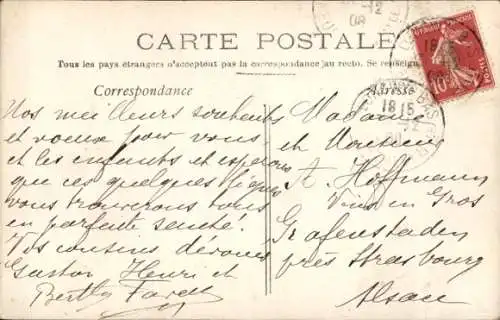 CARTE POSTALE
Tous les pays étrangers n'acceptent pas la correspondance au recto. Se renseigner
Correspondance
Adresse
Nos meilleurs souhaits
et voeux pour vous
et les enfants et esperons
que ces quelques lignes
vous trouverons tous
en parfaite santé.
Vos cousins dévoués
Gaston Henri et
Berthy
Madame
et Monsieur
A. Hoffmann
Vins en Gros
Grafenstaden
près Strasbourg
Alsace
10
18 15